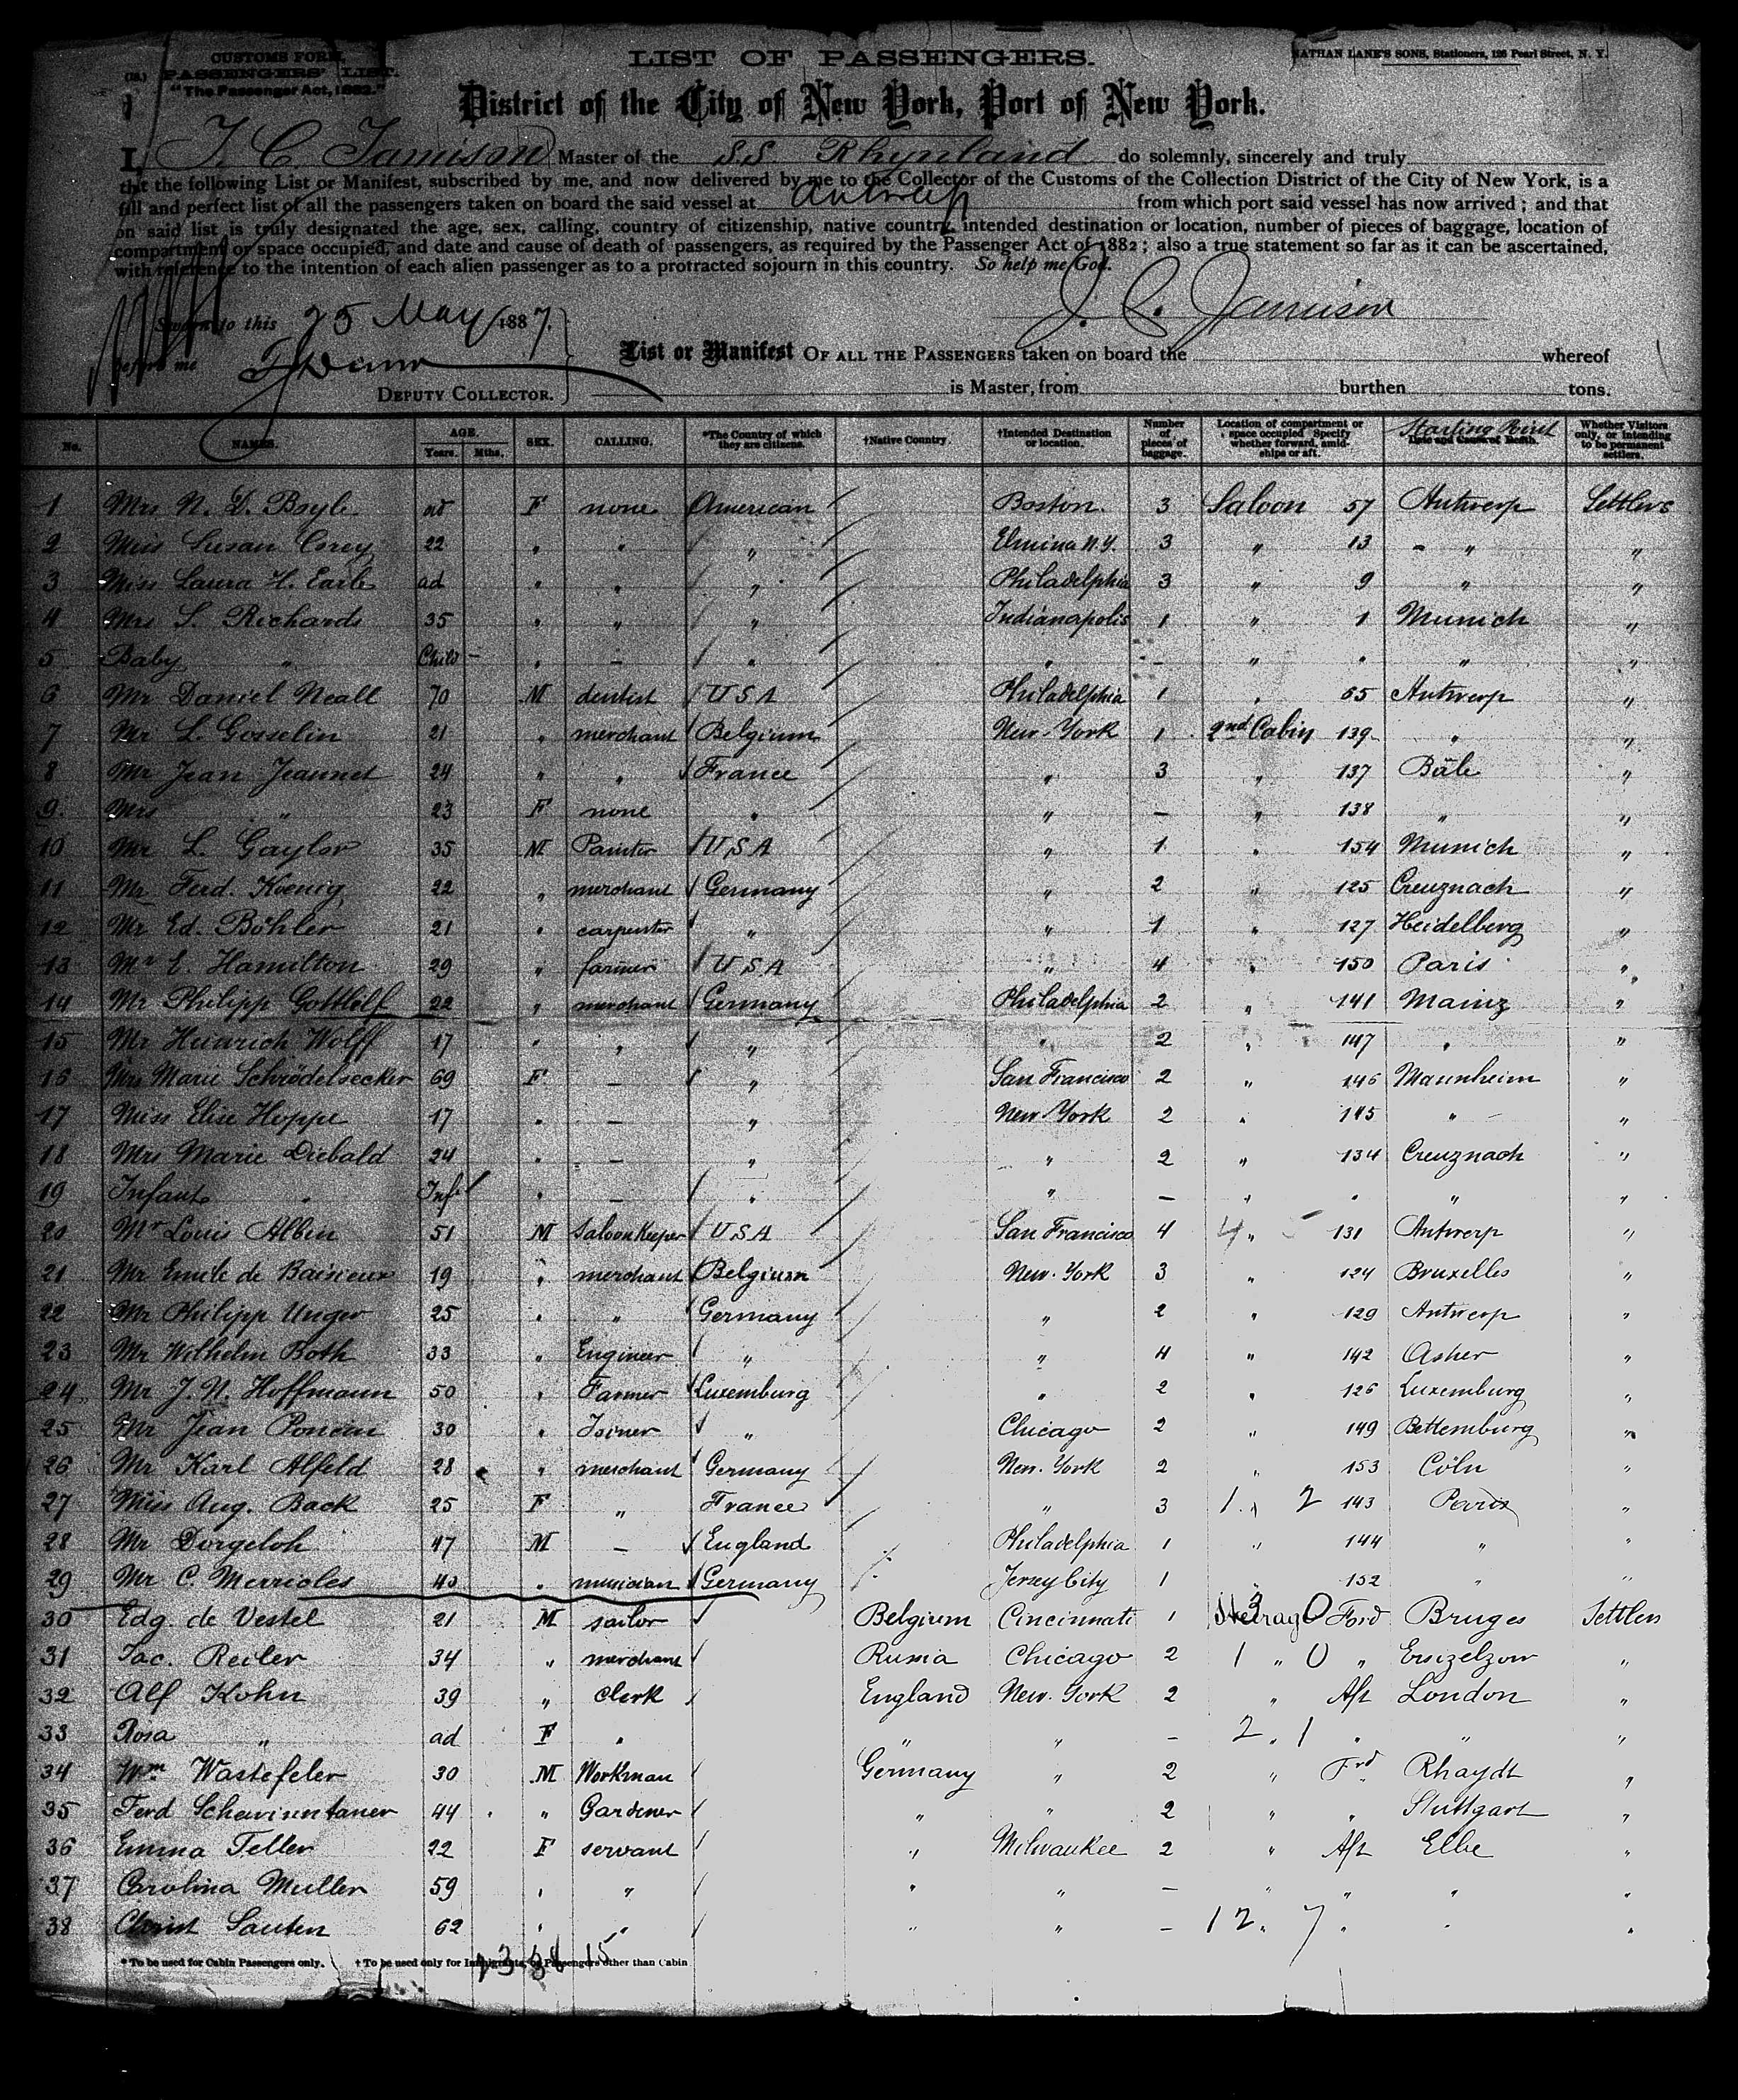 CUSTOMS FORM,
PASSENGERS' LIST.
"The Passenger Act, 1882."
LIST OF PASSENGERS.
NATHAN LANE'S SONS, Stationers, 126 Pearl Street, N. Y.
District of the City of New York, Port of New York.
I, J. C. Jamison Master of the S.S. Rhynland do solemnly, sincerely and truly
that the following List or Manifest, subscribed by me, and now delivered by me to the Collector of the Customs of the Collection District of the City of New York, is a
full and perfect list of all the passengers taken on board the said vessel at Antwerp from which port said vessel has now arrived; and that
on said list is truly designated the age, sex, calling, country of citizenship, native country, intended destination or location, number of pieces of baggage, location of
compartment or space occupied, and date and cause of death of passengers, as required by the Passenger Act of 1882; also a true statement so far as it can be ascertained,
with reference to the intention of each alien passenger as to a protracted sojourn in this country. So help me God.
J. C. Jamison
Sworn to this 25 May 1887.
before me
List or Manifest OF ALL THE PASSENGERS taken on board the whereof
DEPUTY COLLECTOR.
is Master, from burthen tons.
No. NAMES. AGE. Years. Mths. SEX. CALLING. *The Country of which they are citizens. †Native Country. †Intended Destination or location. Number of pieces of baggage. Location of compartment or space occupied Specify whether forward, amidships or aft. Starting Point Date and Cause of Death. Whether Visitors only, or intending to be permanent settlers.
1 Mrs N. D. Boyle ad F none American Boston. 3 Saloon 57 Antwerp Settlers
2 Miss Susan Corey 22 " " " Elmira N.Y. 3 " 13 " "
3 Miss Laura H. Earle ad " " " Philadelphia 3 " 9 " "
4 Mrs S. Richards 35 " " " Indianapolis 1 " 1 Munich "
5 Baby " Child " — " " — " " " "
6 Mr Daniel Neall 70 M dentist USA Philadelphia 1 " 65 Antwerp "
7 Mr L. Gosselin 21 " merchant Belgium New York 1 2nd Cabin 139 " "
8 Mr Jean Jeannet 24 " " France " 3 " 137 Bâle "
9 Mrs " 23 F none " " — " 138 " "
10 Mr L. Gaylor 35 M Painter USA " 1 " 154 Munich "
11 Mr Ferd. Koenig 22 " merchant Germany " 2 " 125 Creuznach "
12 Mr Ed. Böhler 21 " carpenter " " 1 " 127 Heidelberg "
13 Mr E. Hamilton 29 " farmer USA " 4 " 150 Paris "
14 Mr Philipp Gottlieb 22 " merchant Germany Philadelphia 2 " 141 Mainz "
15 Mr Heinrich Wolff 17 " " " " 2 " 147 " "
16 Mrs Marie Schrödelsecker 69 F — " San Francisco 2 " 146 Mannheim "
17 Miss Elise Hoppe 17 " — " New York 2 " 145 " "
18 Mrs Marie Diebald 24 " — " " 2 " 134 Creuznach "
19 Infant " Inft " — " " — " " " "
20 Mr Louis Albin 51 M Saloon Keeper USA San Francisco 4 4 " 131 Antwerp "
21 Mr Emile de Baisieux 19 " merchant Belgium New York 3 " 124 Bruxelles "
22 Mr Philipp Unger 25 " " Germany " 2 " 129 Antwerp "
23 Mr Wilhelm Both 33 " Engineer " " 4 " 142 Asher "
24 Mr J. N. Hoffmann 50 " Farmer Luxemburg " 2 " 126 Luxemburg "
25 Mr Jean Poncin 30 " Joiner " Chicago 2 " 149 Bettemburg "
26 Mr Karl Alfeld 28 " merchant Germany New York 2 " 153 Cöln "
27 Miss Aug. Back 25 F " France " 3 1 " 2 143 Paris "
28 Mr Dorgeloh 47 M — England Philadelphia 1 " 144 " "
29 Mr C. Merrioles 40 " musician Germany Jersey City 1 152 " "
30 Edg. de Vestel 21 M sailor Belgium Cincinnati 1 Steerage Ford Bruges Settlers
31 Jac. Reiler 34 " merchant Russia Chicago 2 1 " 0 " "
32 Alf Kohn 39 " Clerk England New York 2 " Aft London "
33 Rosa " ad F " " " — 2 " 1 " " "
34 Wm. Wastefeler 30 M Workman Germany " 2 " Frd Rhaydt "
35 Ferd 44 " Gardener " " 2 " " Stuttgart "
36 Emma Teller 22 F servant " Milwaukee 2 " Aft Elbe "
37 Carolina Muller 59 " " " " — " " " "
38 Christ Sauten 62 " " " " — 12 " 7 " " "
* To be used for Cabin Passengers only. † To be used only for Immigrants, or Passengers other than Cabin